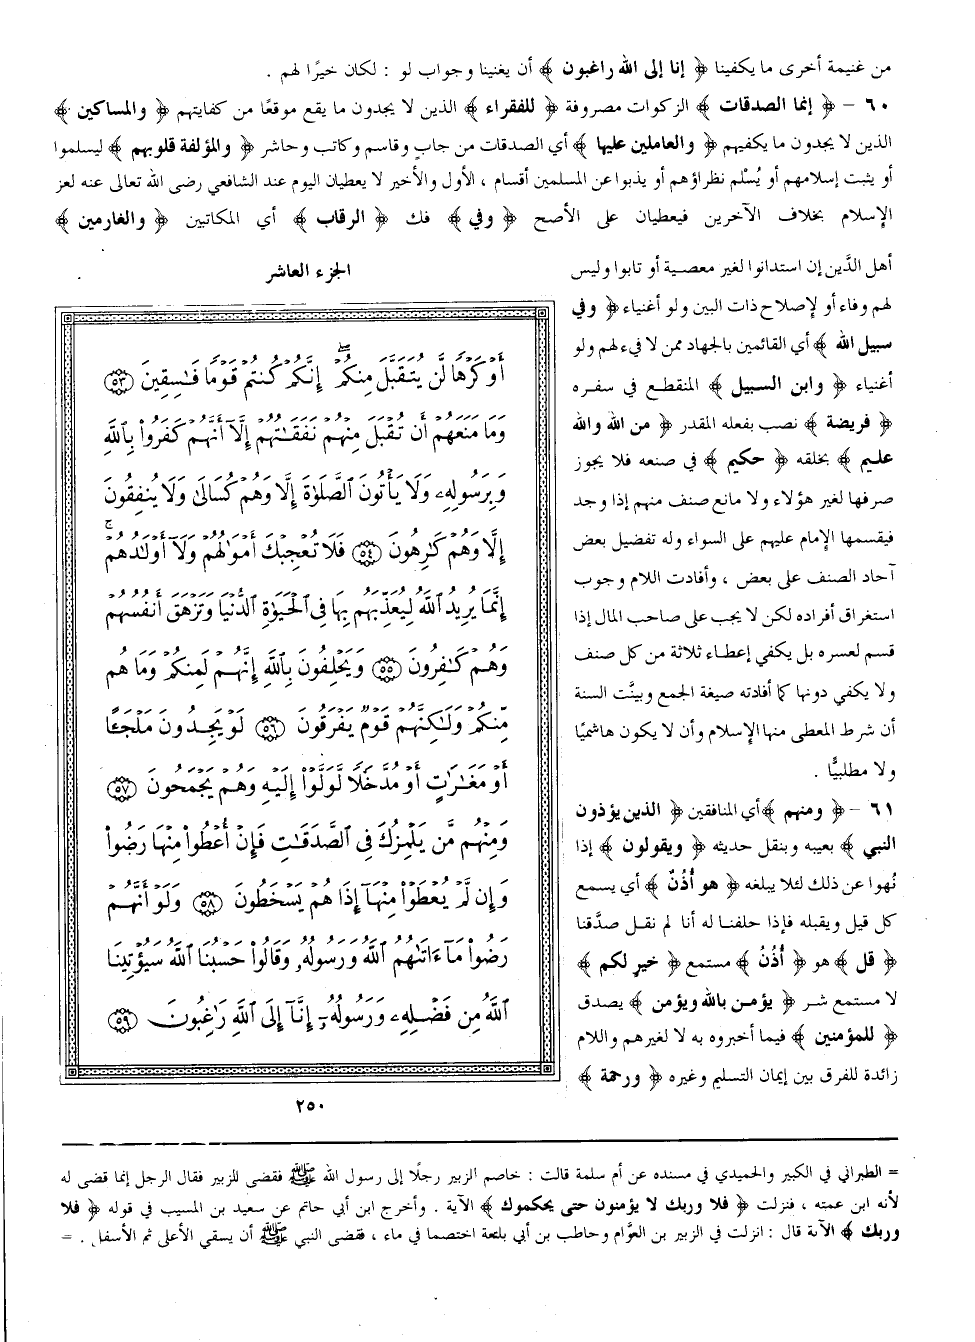 من غنيمة أخرى ما يكفينا ﴿ إنا إلى الله راغبون ﴾ أن يغنينا وجواب لو : لكان خيرًا لهم .
٦٠ - ﴿ إنما الصدقات ﴾ الزكوات مصروفة ﴿ للفقراء ﴾ الذين لا يجدون ما يقع موقعًا من كفايتهم ﴿ والمساكين ﴾
الذين لا يجدون ما يكفيهم ﴿ والعاملين عليها ﴾ أي الصدقات من جابٍ وقاسم وكاتب وحاشر ﴿ والمؤلفة قلوبهم ﴾ ليسلموا
أو يثبت إسلامهم أو يُسْلم نظراؤهم أو يذبوا عن المسلمين أقسام ، الأول والأخير لا يعطيان اليوم عند الشافعي رضى الله تعالى عنه لعز
الإسلام بخلاف الآخرين فيعطيان على الأصح ﴿ وفي ﴾ فك ﴿ الرقاب ﴾ أي المكاتبين ﴿ والغارمين ﴾
أهل الدَّين إن استدانوا لغير معصية أو تابوا وليس
لهم وفاء أو لإصلاح ذات البين ولو أغنياء ﴿ وفي
سبيل الله ﴾ أي القائمين بالجهاد ممن لا فيء لهم ولو
أغنياء ﴿ وابن السبيل ﴾ المنقطع في سفره
﴿ فريضة ﴾ نصب بفعله المقدر ﴿ من الله والله
عليم ﴾ بخلقه ﴿ حكيم ﴾ في صنعه فلا يجوز
صرفها لغير هؤلاء ولا مانع صنف منهم إذا وجد
فيقسمها الإمام عليهم على السواء وله تفضيل بعض
آحاد الصنف على بعض ، وأفادت اللام وجوب
استغراق أفراده لكن لا يجب على صاحب المال إذا
قسم لعسره بل يكفي إعطاء ثلاثة من كل صنف
ولا يكفي دونها كما أفادته صيغة الجمع وبينَّت السنة
أن شرط المعطى منها الإسلام وأن لا يكون هاشميًا
ولا مطلبيًّا .
٦١ - ﴿ ومنهم ﴾ أي المنافقين ﴿ الذين يؤذون
النبي ﴾ بعيبه وبنقل حديثه ﴿ ويقولون ﴾ إذا
نُهوا عن ذلك لئلا يبلغه ﴿ هو أُذُنٌ ﴾ أي يسمع
كل قيل ويقبله فإذا حلفنا له أنا لم نقل صدَّقنا
﴿ قل ﴾ هو ﴿ أُذُنُ ﴾ مستمع ﴿ خيرٍ لكم ﴾
لا مستمع شر ﴿ يؤمن بالله ويؤمن ﴾ يصدق
﴿ للمؤمنين ﴾ فيما أخبروه به لا لغيرهم واللام
زائدة للفرق بين إيمان التسليم وغيره ﴿ ورحمة ﴾
الجزء العاشر
أَوْ كَرْهًا لَّن يُتَقَبَّلَ مِنكُمْ ۖ إِنَّكُمْ كُنتُمْ قَوْمًا فَٰسِقِينَ ٥٣
وَمَا مَنَعَهُمْ أَن تُقْبَلَ مِنْهُمْ نَفَقَٰتُهُمْ إِلَّآ أَنَّهُمْ كَفَرُوا۟ بِٱللَّهِ
وَبِرَسُولِهِۦ وَلَا يَأْتُونَ ٱلصَّلَوٰةَ إِلَّا وَهُمْ كُسَالَىٰ وَلَا يُنفِقُونَ
إِلَّا وَهُمْ كَٰرِهُونَ ٥٤ فَلَا تُعْجِبْكَ أَمْوَٰلُهُمْ وَلَآ أَوْلَٰدُهُمْ ۚ
إِنَّمَا يُرِيدُ ٱللَّهُ لِيُعَذِّبَهُم بِهَا فِى ٱلْحَيَوٰةِ ٱلدُّنْيَا وَتَزْهَقَ أَنفُسُهُمْ
وَهُمْ كَٰفِرُونَ ٥٥ وَيَحْلِفُونَ بِٱللَّهِ إِنَّهُمْ لَمِنكُمْ وَمَا هُم
مِّنكُمْ وَلَٰكِنَّهُمْ قَوْمٌ يَفْرَقُونَ ٥٦ لَوْ يَجِدُونَ مَلْجَـًٔا
أَوْ مَغَٰرَٰتٍ أَوْ مُدَّخَلًا لَّوَلَّوْا۟ إِلَيْهِ وَهُمْ يَجْمَحُونَ ٥٧
وَمِنْهُم مَّن يَلْمِزُكَ فِى ٱلصَّدَقَٰتِ فَإِنْ أُعْطُوا۟ مِنْهَا رَضُوا۟
وَإِن لَّمْ يُعْطَوْا۟ مِنْهَآ إِذَا هُمْ يَسْخَطُونَ ٥٨ وَلَوْ أَنَّهُمْ
رَضُوا۟ مَآ ءَاتَىٰهُمُ ٱللَّهُ وَرَسُولُهُۥ وَقَالُوا۟ حَسْبُنَا ٱللَّهُ سَيُؤْتِينَا
ٱللَّهُ مِن فَضْلِهِۦ وَرَسُولُهُۥٓ إِنَّآ إِلَى ٱللَّهِ رَٰغِبُونَ ٥٩
٢٥٠
= الطبراني في الكبير والحميدي في مسنده عن أم سلمة قالت : خاصم الزبير رجلًا إلى رسول الله ﷺ فقضى للزبير فقال الرجل إنما قضى له
لأنه ابن عمته ، فنزلت ﴿ فلا وربك لا يؤمنون حتى يحكموك ﴾ الآية . وأخرج ابن أبي حاتم عن سعيد بن المسيب في قوله ﴿ فلا
وربك ﴾ الآية قال : انزلت في الزبير بن العوَّام وحاطب بن أبي بلتعة اختصما في ماء ، فقضى النبي ﷺ أن يسقي الأعلى ثم الأسفل . =